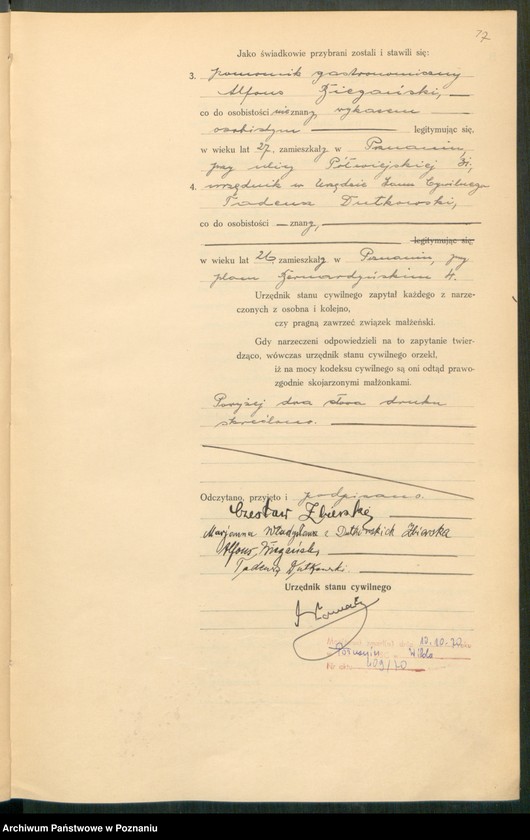 77
Jako świadkowie przybrani zostali i stawili się:
3. pomocnik gastronomiczny
Alfons
co do osobistości nieznany, wykazem
osobistym legitymując się,
w wieku lat 27, zamieszkały w Poznaniu,
przy ulicy Półwiejskiej 31,
4. urzędnik w Urzędzie Stanu Cywilnego
Tadeusz Dutkowski,
co do osobistości — znany,
legitymując się
w wieku lat 26 zamieszkały w Poznaniu, przy
placu Bernardyńskim 4.
Urzędnik stanu cywilnego zapytał każdego z narze-
czonych z osobna i kolejno,
czy pragną zawrzeć związek małżeński.
Gdy narzeczeni odpowiedzieli na to zapytanie twier-
dząco, wówczas urzędnik stanu cywilnego orzekł,
iż na mocy kodeksu cywilnego są oni odtąd prawo-
zgodnie skojarzonymi małżonkami.
Powyżej dwa słowa druku
skreślono.
Odczytano, przyjęto i podpisano.
Czesław Zbierski
Marjanna Władysława z Dutkowskich Zbierska
Alfons
Tadeusz Dutkowski.
Urzędnik stanu cywilnego
17.10.70
Poznaniu Wilda
Nr aktu 409/70
Archiwum Państwowe w Poznaniu